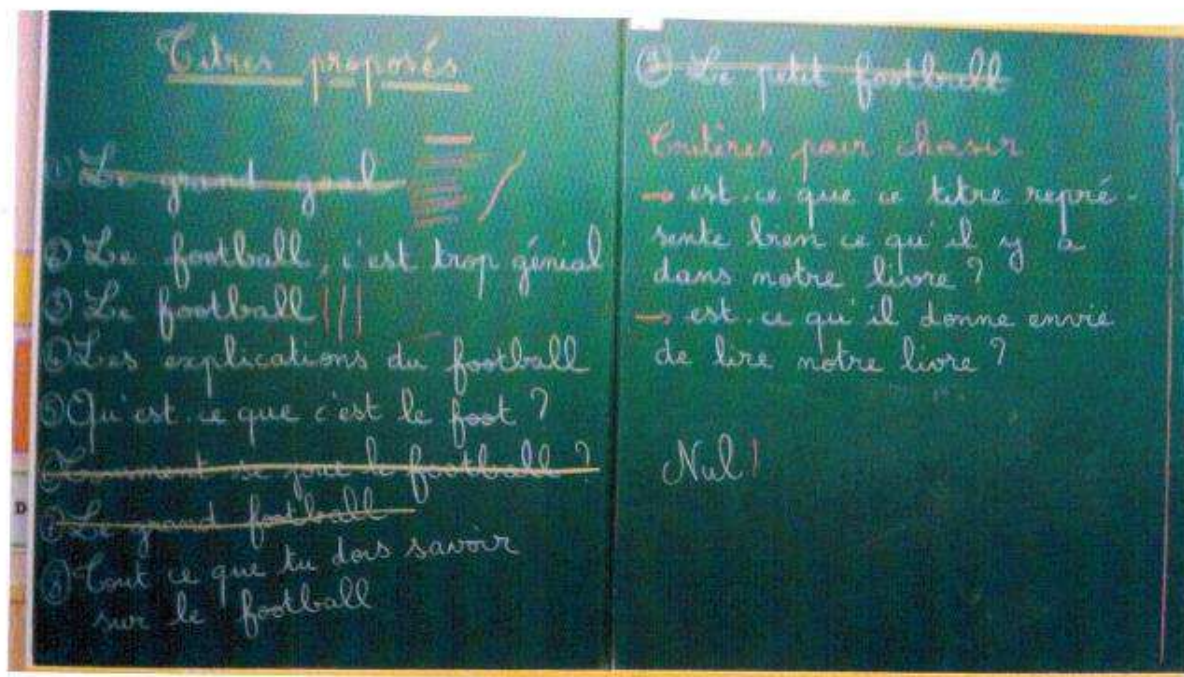 Titres proposés
① Le grand goal
② Le football, c'est trop génial
③ Le football
④ Les explications du football
⑤ Qu'est-ce que c'est le foot ?
⑥ Comment se joue le football ?
⑦ Le grand football
⑧ Tout ce que tu dois savoir
sur le football
⑨ Le petit football
Critères pour choisir
→ est-ce que ce titre repré-
sente bien ce qu'il y a
dans notre livre ?
→ est-ce qu'il donne envie
de lire notre livre ?
Nul
D